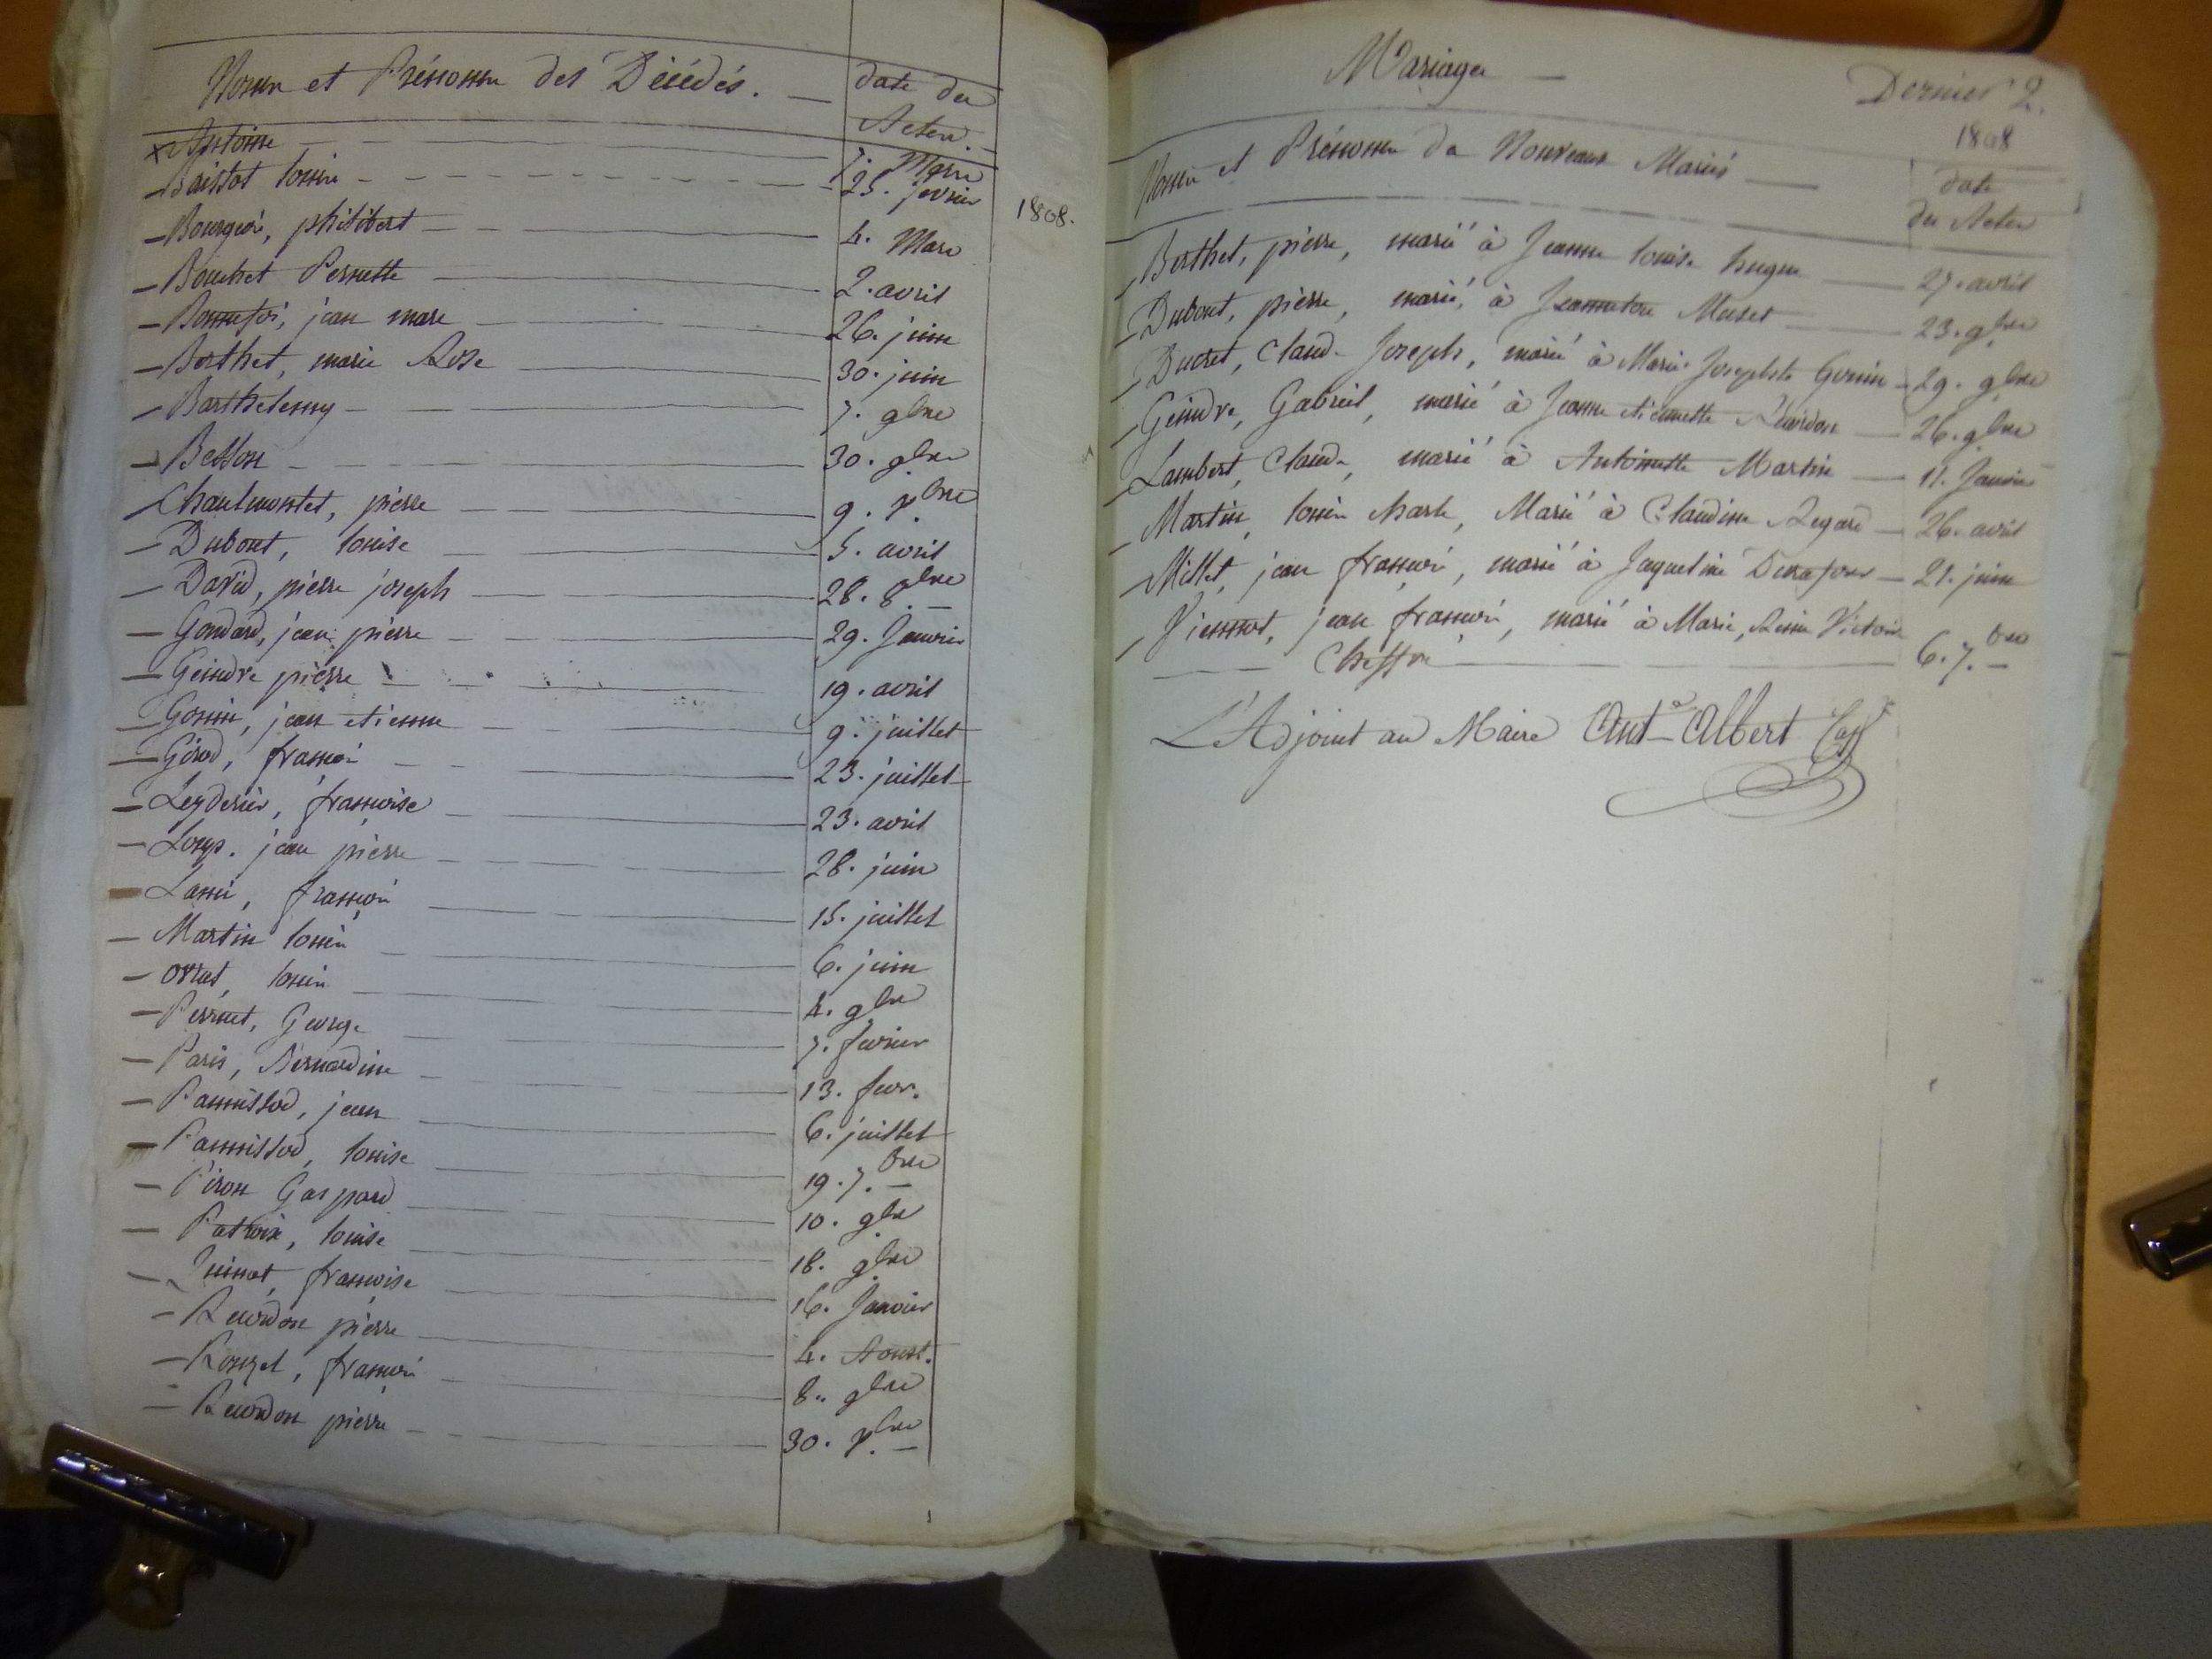 Noms et Prénoms des Décédés. — date des
Actes.
Antoine 7. Mars
Baistot louise 25. fevrier
1808.
Bourgeois, philibert 4. Mars
Bouchet Pernette 2. avril
Bonnefoi, jean marc 26. juin
Berthet, marie Rose 30. juin
Barthelemy 7. 9bre
Besson 30. 9bre
Chaulmontet, pierre 9. Xbre
Dubout, louise 5. avril
David, pierre joseph 28. 8bre
Gondard, jean pierre 29. Janvier
Geindre pierre 19. avril
Gonin, jean etienne 9. juillet
Girod, francois 23. juillet
Leyderier, francoise 23. avril
Loup. jean pierre 28. juin
francois 15. juillet
Martin louis 6. juin
Orsat, louis 4. 9bre
Perruet, George 7. fevrier
Paris, Bernardine 13. fevr.
Pannissod, jean 6. juillet
Pannissod, louise 19. 7.bre
Piron Gaspard 10. 9bre
Patroix, louise 18. 9bre
Quinat, francoise 16. Janvier
Reverdon pierre 4. Aoust.
Rouzet, francois 8. 9bre
Reverdon pierre 30. Xbre
Mariages —
Dernier 2.
1808
Noms et Prénoms de Nouveaux Mariés — date
des Actes
Berthet, pierre, marié à Jeanne louise hugue 27. avril
Dubout, pierre, marié, à Jeanneton Muset 23. 9bre
Ducret, Claude Joseph, marié à Marie Josephte Gonin 29. 9bre
Geindre, Gabriel, marié à Jeanne etiennette Reverdon 26. 9bre
Lambert, Claude, marié à Antoinette Martin 11. Janvier
Martin, louis charle, Marié à Claudine Regard 26. avril
Millet, jean francois, marié à Jaqueline 21. juin
Viennot, jean francois, marié à Marie, Aimé Victoire
6. 7.bre
L'Adjoint au Maire Ant=Albert